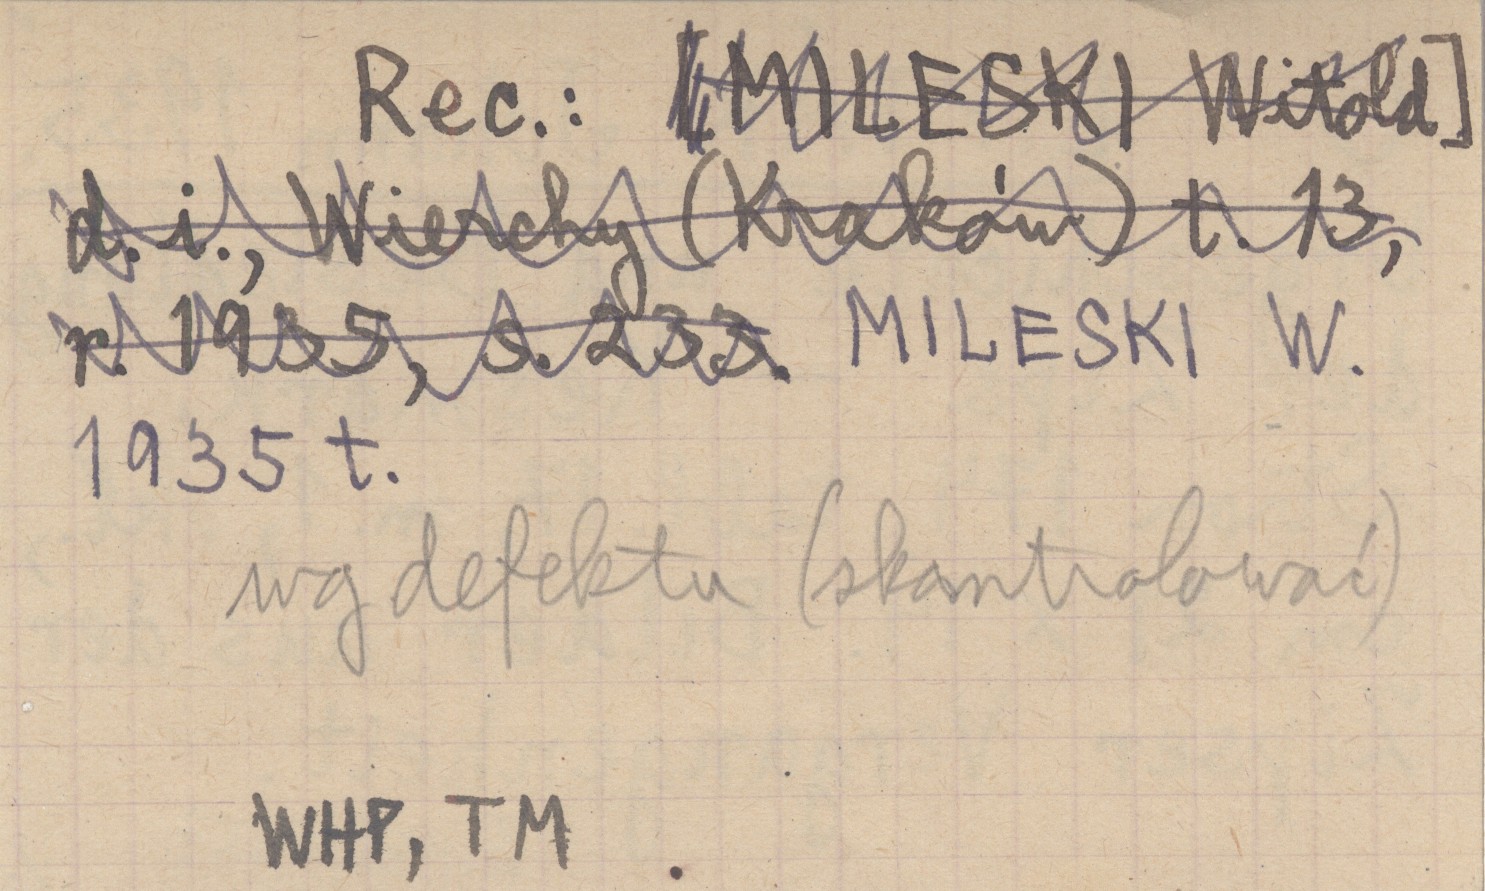 Rec.: [MILESKI Witold]
d. i., Wierchy (Kraków) t. 13,
r. 1935, s. 233. MILESKI W.
1935 t.
wg defektu (skontrolować)
WHP, TM